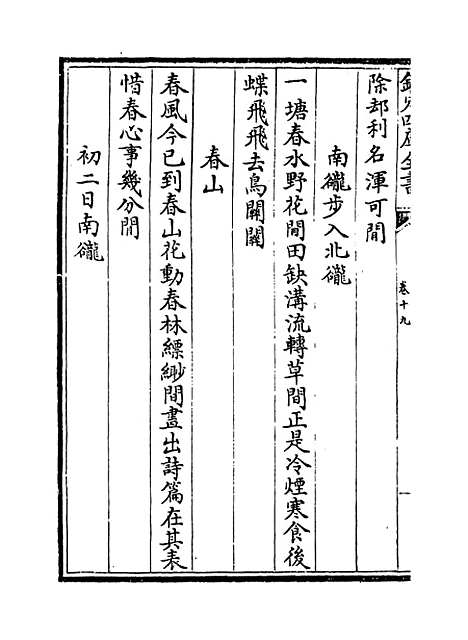 欽定四庫全書
卷十九
一
除却利名渾可閒
南礲步入北礲
一塘春水野花閒田缺溝流轉草間正是冷煙寒食後
蝶飛飛去鳥關關
春山
春風今已到春山花動春林縹緲間畫出詩篇在其表
惜春心事幾分閒
初二日南礲